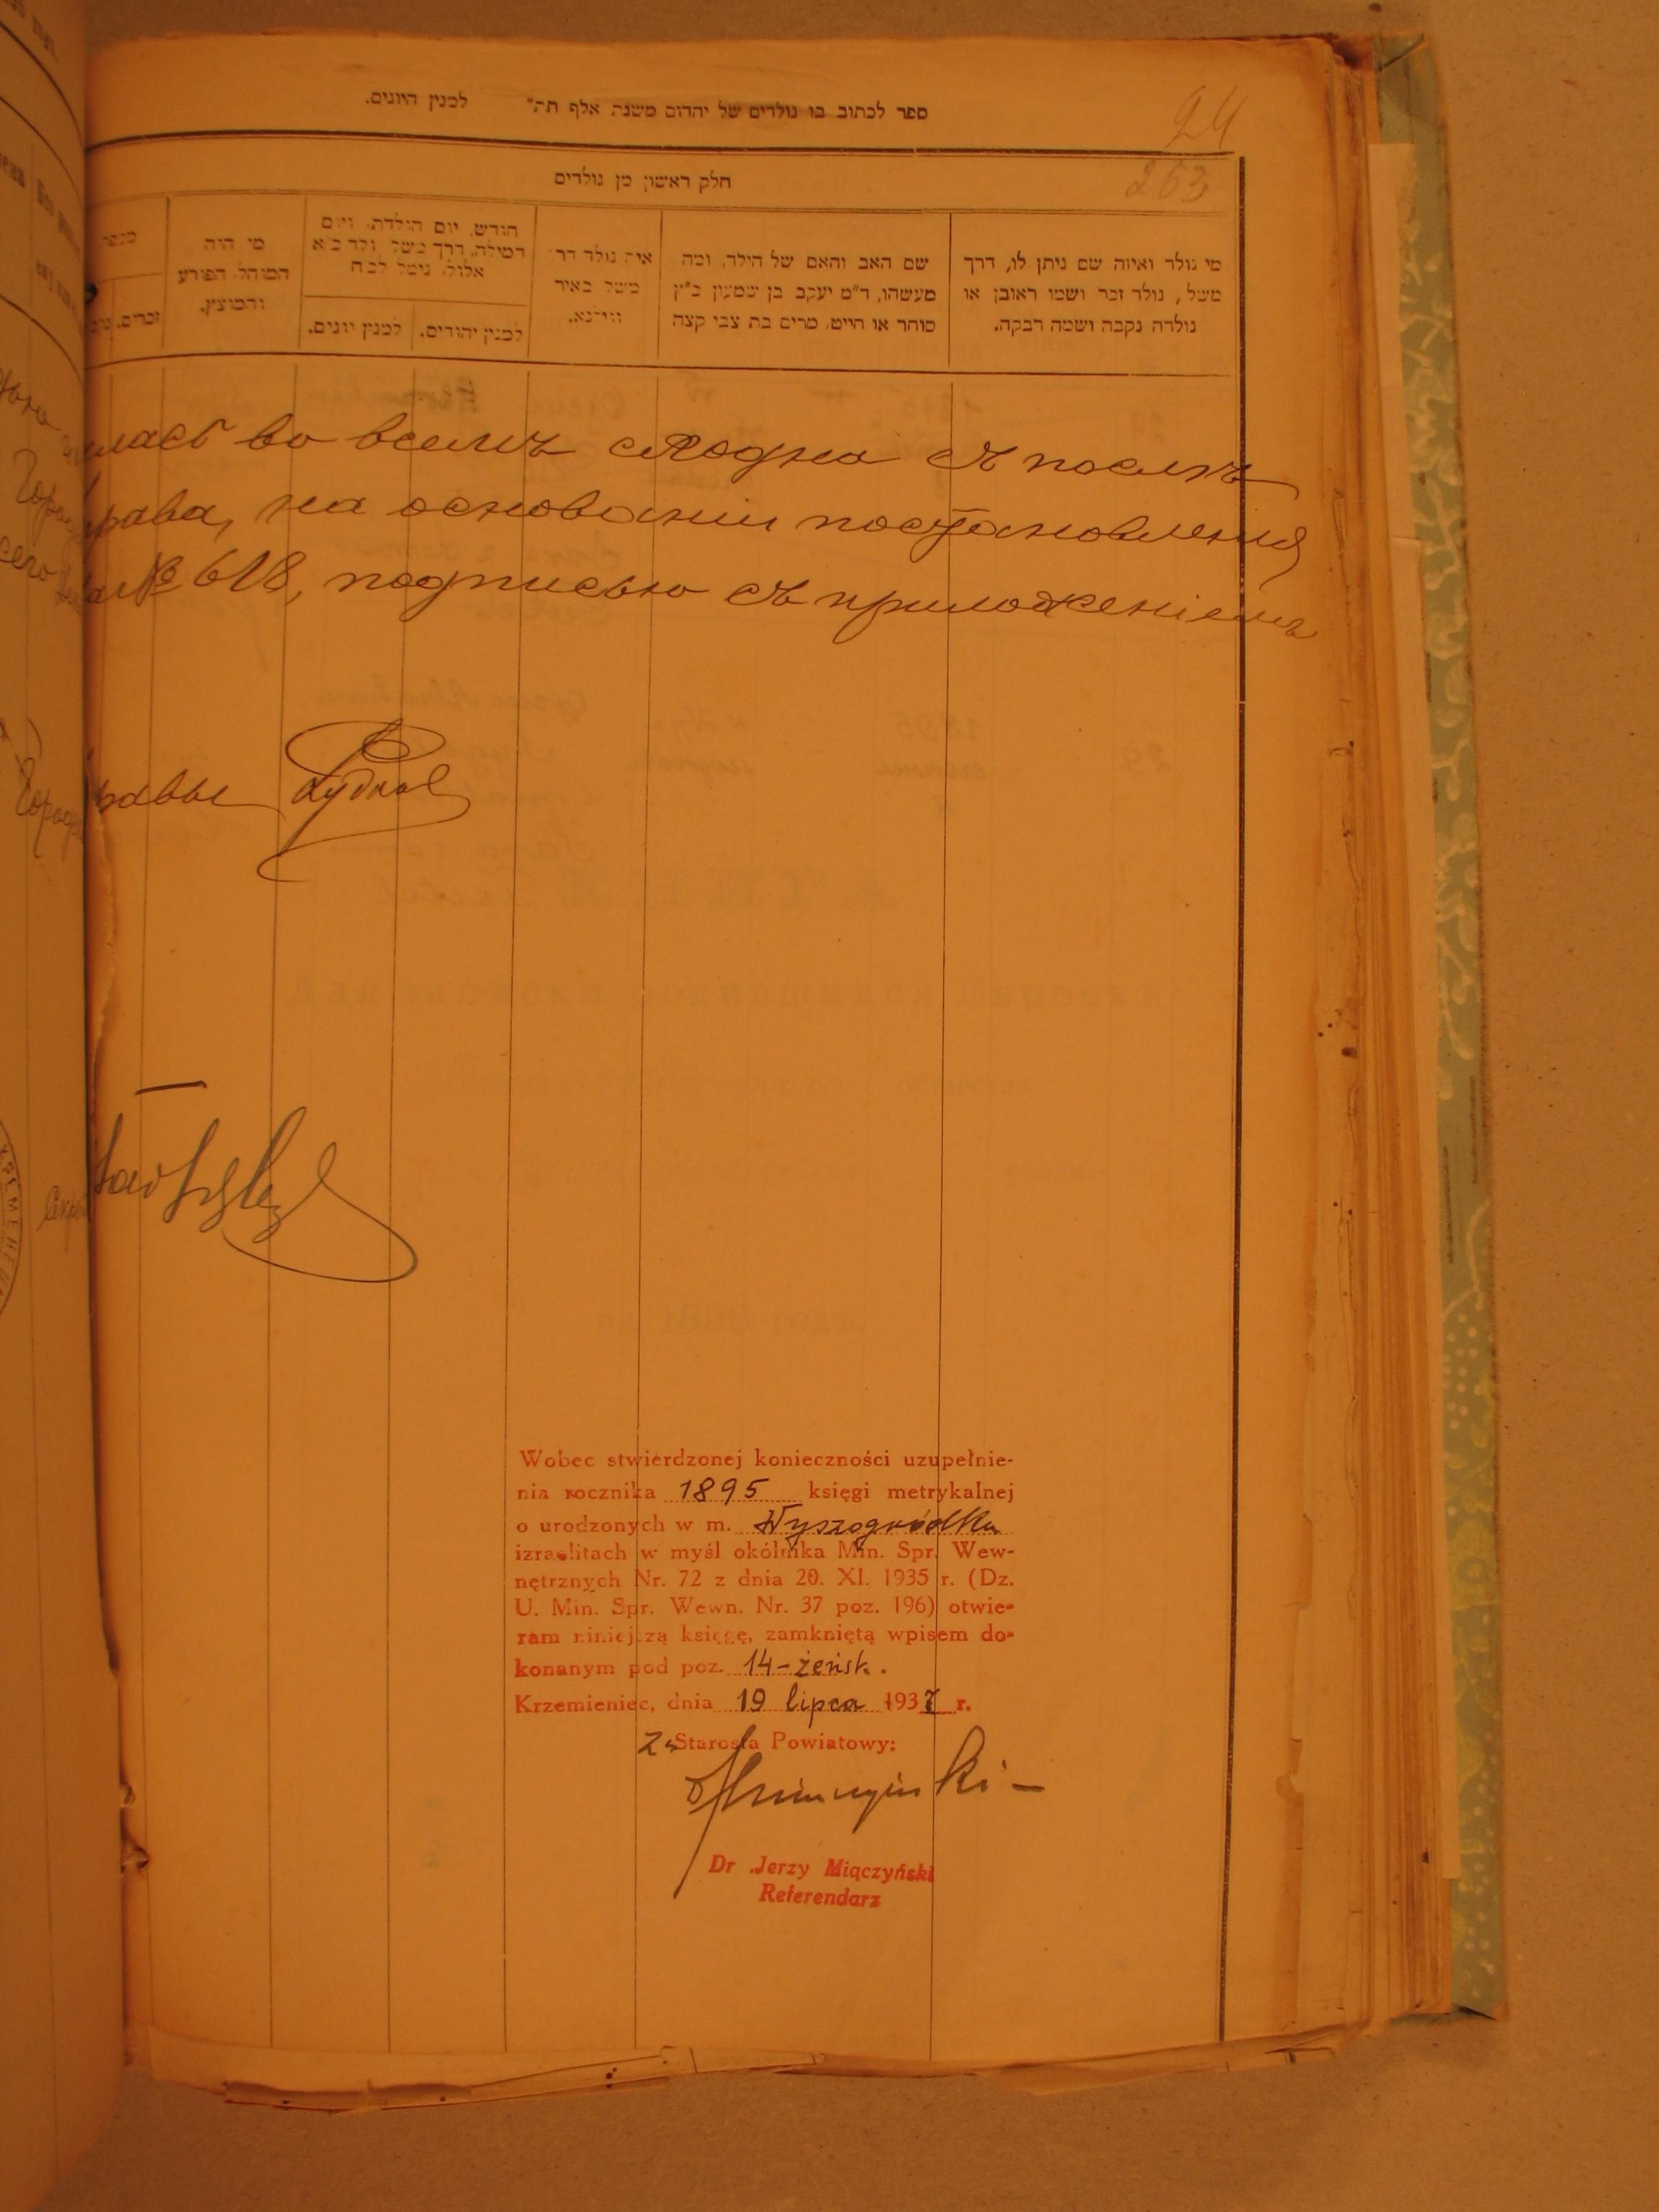 ספר לכתוב בו נולדים של יהדום משנה אלף תה" למנין היונים.
24
263
חלק ראשון מן נולדים
מי נולד ואיזה שם ניתן לו, דרך
משל, נולד זכר ושמו ראובן או
נולדה נקבה ושמה רבקה.
שם האב והאם של הילד, ומה
מעשהו, ד"מ יעקב בן שמעון כ"ץ
סוחר או חייט, מרים בת צבי קצה
איה נולד דר
משל באיר
ווילנא.
חודש, יום הולדת, ויום
המילה, דרך משל, ולד כ"א
אלול, נימל לכ"ח
למנין יהודים.
למנין יונים.
מי היה
המוהל הפורע
והמוצץ.
מספר
זכרים.
во всемъ сходна съ
права, на основаніи постановленія
№ 618, подписью съ приложеніемъ
Wobec stwierdzonej konieczności uzupełnie-
nia rocznika 1895 księgi metrykalnej
o urodzonych w m. Wyszogródku
izraelitach w myśl okólnika Min. Spr. Wew-
nętrznych Nr. 72 z dnia 20. XI. 1935 r. (Dz.
U. Min. Spr. Wewn. Nr. 37 poz. 196) otwie-
ram niniejszą księgę, zamkniętą wpisem do-
konanym pod poz. 14-żeńsk.
Krzemieniec, dnia 19 lipca 1937 r.
Za Starosta Powiatowy:
Dr Jerzy Miączyński
Referendarz